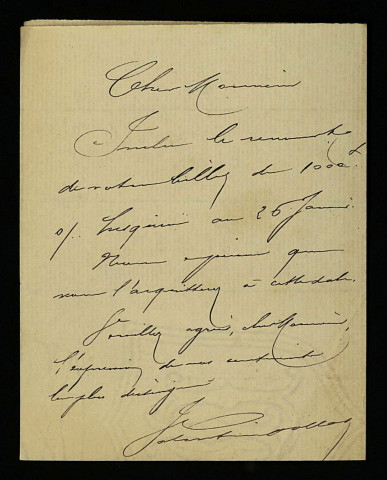 Cher Monsieur
Inclus le renouvelt
de votre billet de 1000 f
s/. Lusquin au 26 Janv.
Nous espérons que
vous l'acquitterez à cette date.
Veuillez agréer, cher Monsieur,
l'expression de nos sentiments
les plus distingués